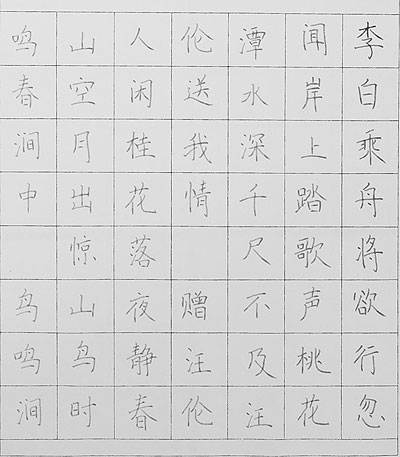 李白乘舟将欲行忽
闻岸上踏歌声桃花
潭水深千尺不及汪
伦送我情 赠汪伦
人闲桂花落夜静春
山空月出惊山鸟时
鸣春涧中 鸟鸣涧